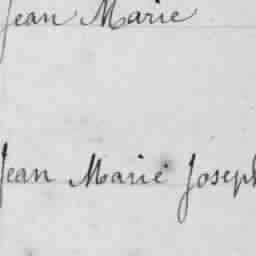 Jean Marie
Jean Marie Joseph